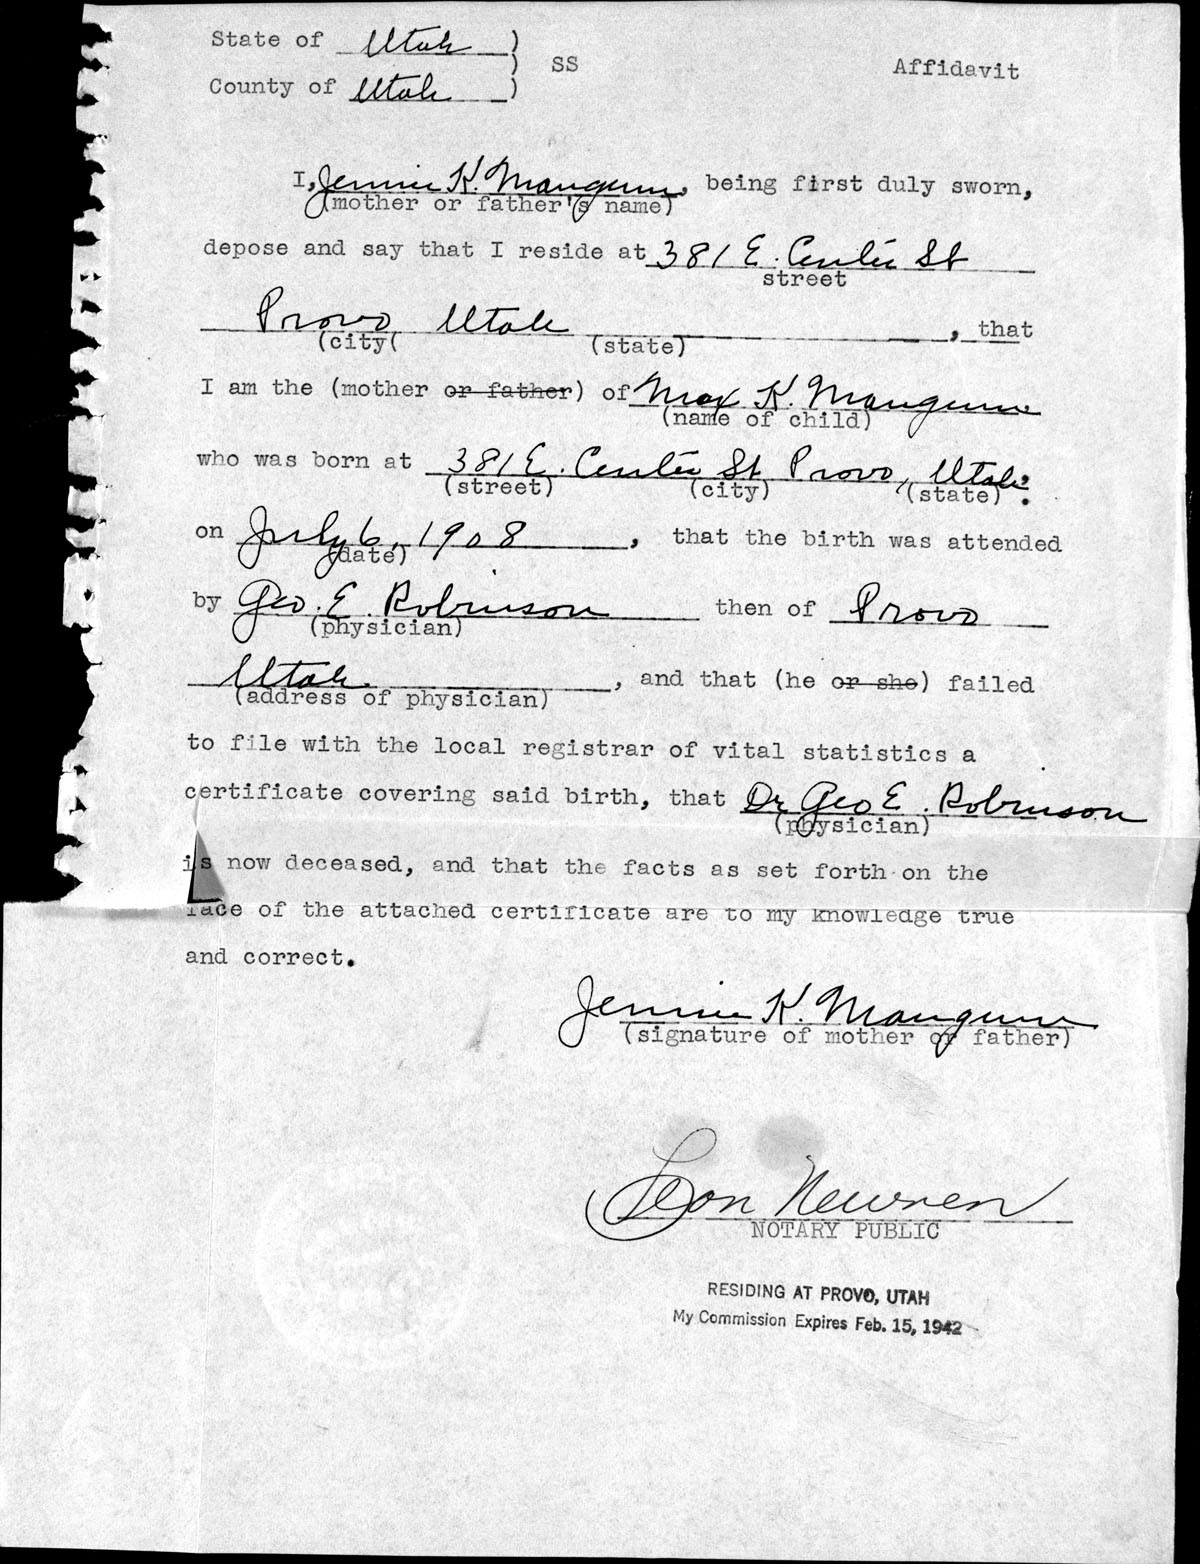 State of Utah )
) SS Affidavit
County of Utah )
I, Jennie K. Mangum, being first duly sworn,
(mother or father's name)
depose and say that I reside at 381 E. Center St
street
Provo Utah , that
(city( (state)
I am the (mother or father) of Max K. Mangum
(name of child)
who was born at 381 E. Center St Provo, Utah:
(street) (city) (state)
on July 6, 1908 , that the birth was attended
(date)
by Geo. E. Robinson then of Provo
(physician)
Utah , and that (he or she) failed
(address of physician)
to file with the local registrar of vital statistics a
certificate covering said birth, that Dr Geo E. Robinson
(physician)
is now deceased, and that the facts as set forth on the
face of the attached certificate are to my knowledge true
and correct.
Jennie K. Mangum
(signature of mother or father)
Leon Newren
NOTARY PUBLIC
RESIDING AT PROVO, UTAH
My Commission Expires Feb. 15, 1942